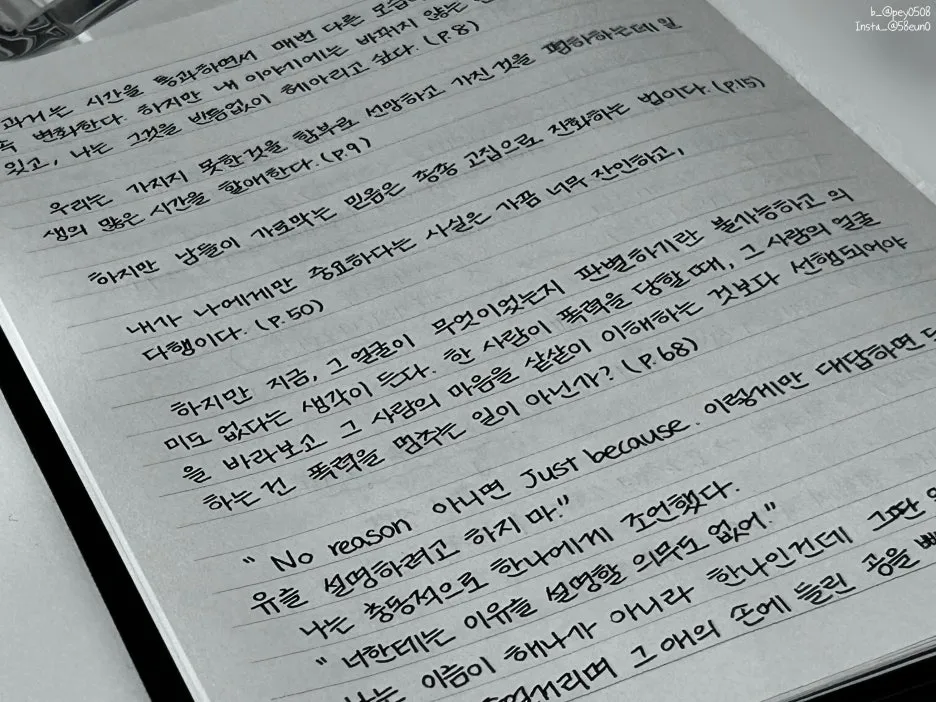 b_@pey0508
Insta_@58eun0
과거는 시간을 통과하면서 매번 다른 모습
속 변화한다. 하지만 내 이야기에는 바뀌지 않는
있고, 나는 그것을 빈틈없이 헤아리고 싶다. (p.8)
우리는 가지지 못한것을 함부로 선망하고 가진 것을 폄하하는데 일
생의 많은 시간을 할애한다. (p.9)
하지만 남들이 가로막는 믿음은 종종 고집으로 진화하는 법이다. (p.15)
내가 나에게만 중요하다는 사실은 가끔 너무 잔인하고,
다행이다. (p.50)
하지만 지금, 그 얼굴이 무엇이었는지 판별하기란 불가능하고 의
미도 없다는 생각이 든다. 한 사람이 폭력을 당할 때, 그 사람의 얼굴
을 바라보고 그 사람의 마음을 샅샅이 이해하는 것보다 선행되어야
하는 건 폭력을 멈추는 일이 아닌가? (p.68)
"No reason 아니면 Just because. 이렇게만 대답하면
유를 설명하려고 하지 마."
나는 충동적으로 한나에게 조언했다.
"너한테는 이유를 설명할 의무도 없어."
이름이 해나가 아니라 한나인건데 그딴
그 애의 손에 들린 공을